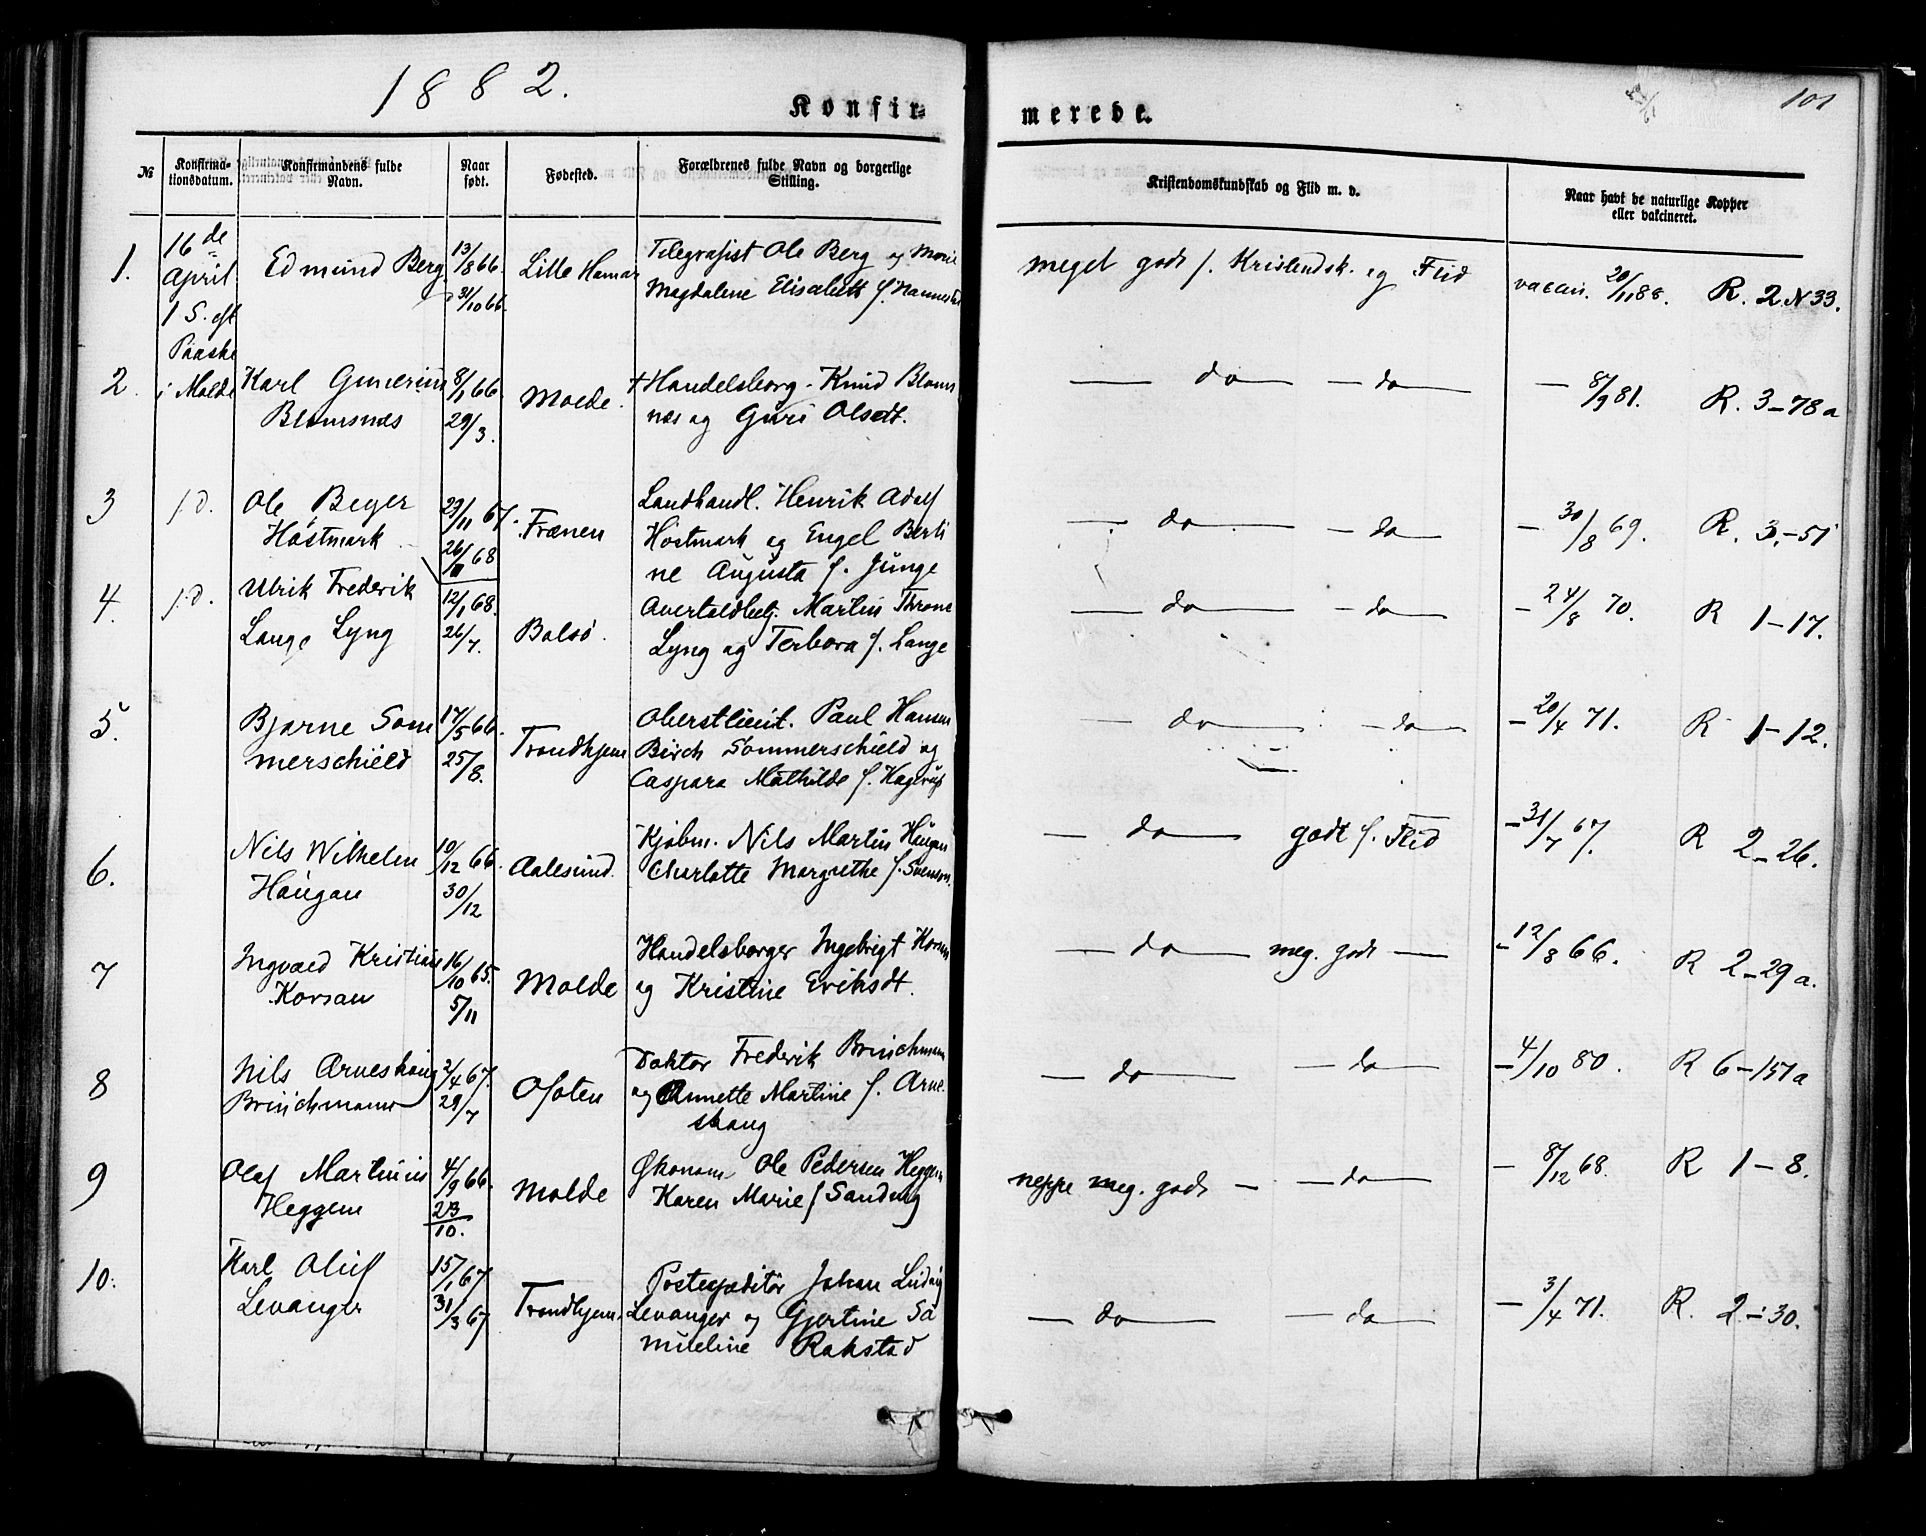 1882.
Konfir-
merede.
101
№
Konfirma-
tionsdatum.
Konfirmandens fulde
Navn.
Naar
født.
Fødested.
Forældrenes fulde Navn og borgerlige
Stilling.
Kristendomskundskab og Flid m. v.
Naar havt de naturlige Kopper
eller vakcineret.
1.
16 de
April
1 S. eft
Paaske
i Molde
Edmund Berg
13/8 66.
31/10 66.
Lille Hamar
Telegrafist Ole Berg og Marie
Magdalene Elisabeth f. Hannestad
meget godt f. Kristendsk. og Flid
vaccin. 20/11 88. R. 2 N 33.
2.
Karl Gunerius
Blomsnes
8/1 66.
29/3.
Molde.
+ Handelsborg. Knud Bloms
nes og Guri Olsdt.
— do — — do —
— 8/9 81. R. 3-78a
3
f.d.
Ole Beyer
Høstmark
29/11 67.
26/11 68
Frænen
Landhandl. Henrik Adolf
Høstmark og Engel Berti
ne Augusta f. Junge
— do — — do —
— 30/8 69. R. 3.-51
4.
f.d.
Ulrik Frederik
Lange Lyng
12/1 68.
26/7.
Bolsø.
Overtoldbetj. Martin Throne
Lyng og Terbora f. Lange
— do — — do —
— 24/8 70. R 1-17.
5.
Bjarne Som
merschield
17/5 66.
25/8.
Trondhjem
Oberstlieut. Paul Hansen
Birch Sommerschield og
Caspara Mathilde f. Hagerup
— do — — do —
— 20/4 71. R 1-12.
6.
Nils Wilhelm
Haugan
10/12 66.
30/12
Aalesund.
Kjøbm. Nils Martin Haugan
Charlotte Margrethe f. Svensen.
— do — godt f. Flid
— 31/7 67. R 2-26.
7
Ingvald Kristian
Korsan
16/10 65.
5/11
Molde
Handelsborger Ingebrigt Korsan
og Kristine Eriksdt.
— do — meg. godt —
— 12/8 66. R 2-29a.
8
Nils Arneskaug
Brinchmann
2/4 67.
29/7
Ofoten
Doktor Frederik Brinchmann
og Annette Martine f. Arne-
skaug
— do — — do —
— 4/10 80. R 6-151a
9
Olaf Martinus
Heggem
4/9 66.
23/10.
Molde
Økonom Ole Pedersen Heggem
Karen Marie f Sandvig
neppe meg. godt — — do —
— 8/12 68. R 1-8.
10.
Karl Oluf
Levanger
15/1 67
31/3 67
Trondhjem.
Postexpeditør Johan Ludvig
Levanger og Gjertine Sa
mueline Rokstad
— do — — do —
— 3/4 71. R. 2-30.